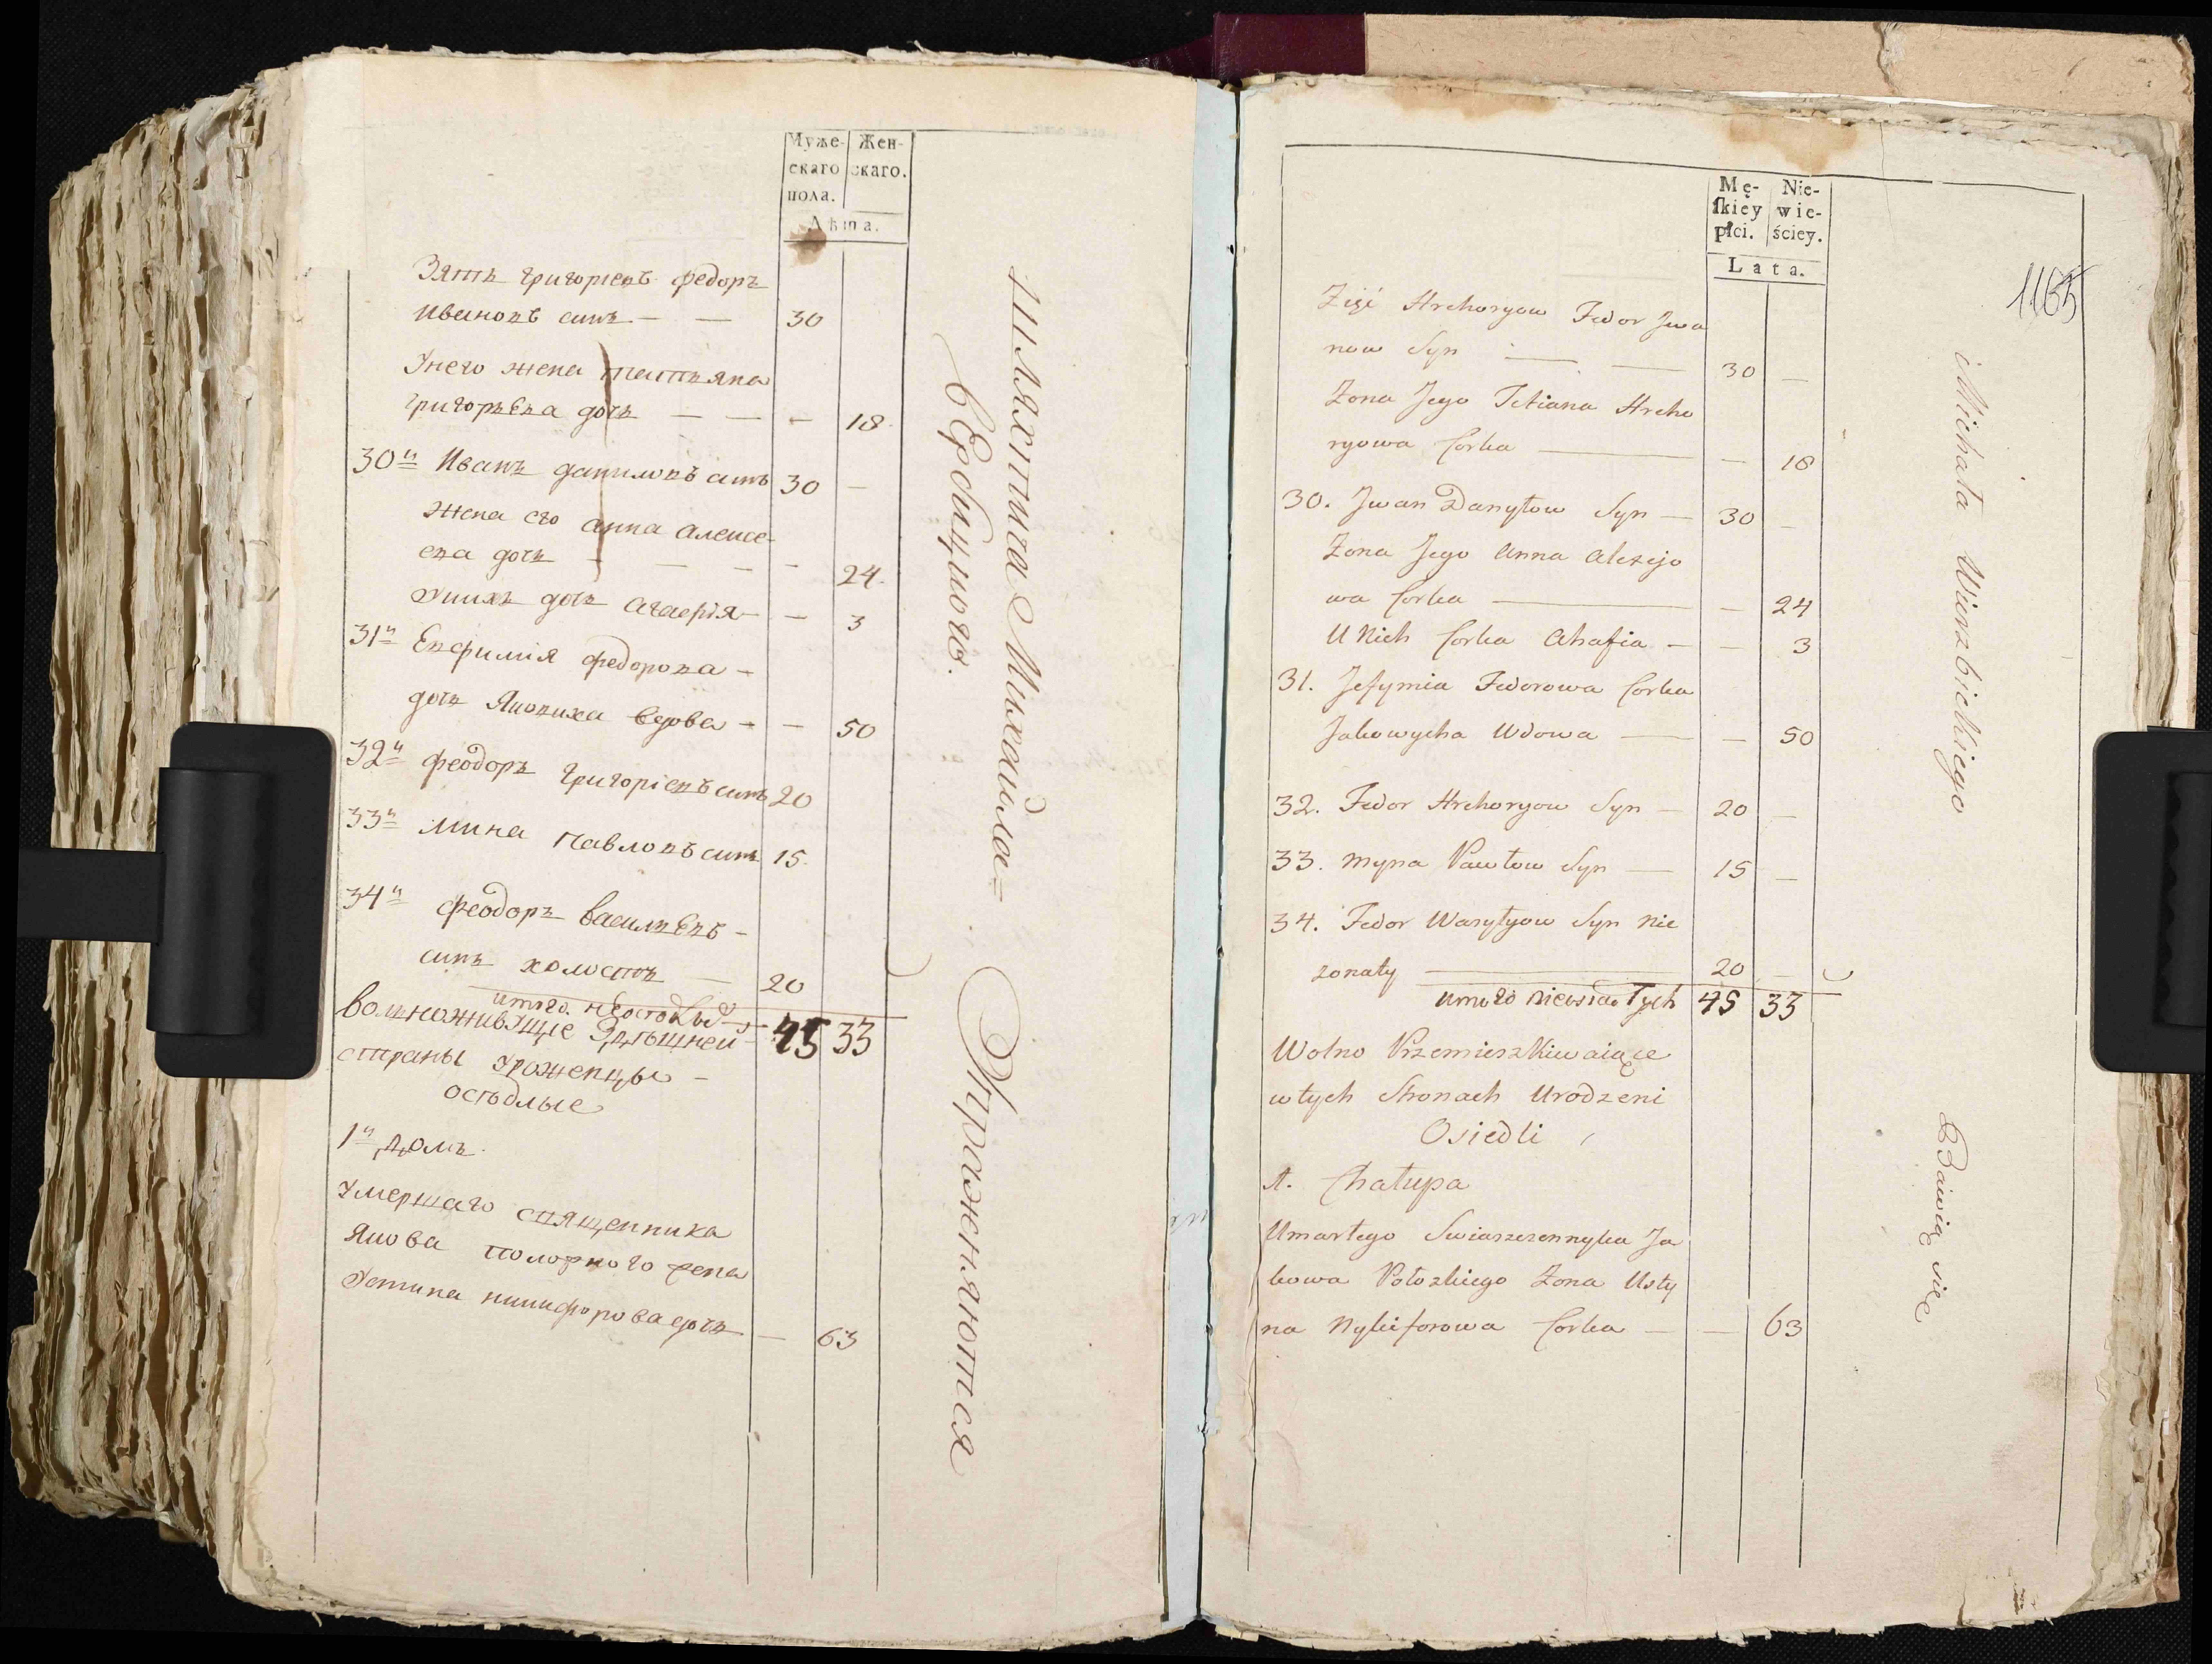 Муже- Жен-
скаго скаго.
пола.
Лѣта.
Зять григориевъ федоръ
Ивановъ сынъ — — 30
Унего жена татьяна
григорьева дочь — — — 18
30й Иванъ даниловъ сынъ 30 —
жена его анна алексе-
ева дочь — — — — 24
Унихъ дочь агафия — — 3
31й Евфимія федорова —
дочь Яковиха вдова — — 50
32й феодоръ григоріевъ сынъ 20
33й мина Павловъ сынъ 15
34й феодоръ васильевъ —
сынъ холостъ — 20
итого неоседлыхъ 45 33
волноживущіе Здѣшней
страны уроженцы —
осѣдлые
1й домъ
Умершаго священника
Якова жена
Устина никифорова дочь — 63
Шляхтича Михайла=
Упражняются
Mę- Nie-
ſkiey wie-
płci. ściey.
Lata.
1165
Zięć Hrehoryow Fedor Jwa
now Syn — — 30 —
Żona Jego Tetiana Hreho
ryowa Corka — — 18
30. Jwan Danyłow Syn — 30 —
Żona Jego Anna Alexejo
wa Corka — — 24
U Nich Corka Ahafia — — 3
31. Jefymia Fedorowa Corka
Jakowycha Wdowa — — 50
32. Fedor Hrehoryow Syn — 20 —
33. Myna Pawłow Syn — 15 —
34. Fedor Wasylyow Syn Nie
zonaty — 20 —
итого niewsiadłych 45 33
Wolno Przemieszkiwaiące
wtych Stronach Urodzeni
Osiedli
1. Chałupa
Umarłego Swiaszczennyka Ja
kowa Połozkiego Żona Usty
na Nykiforowa Corka — — 63
Michała Wierzbickiego
Bawią się